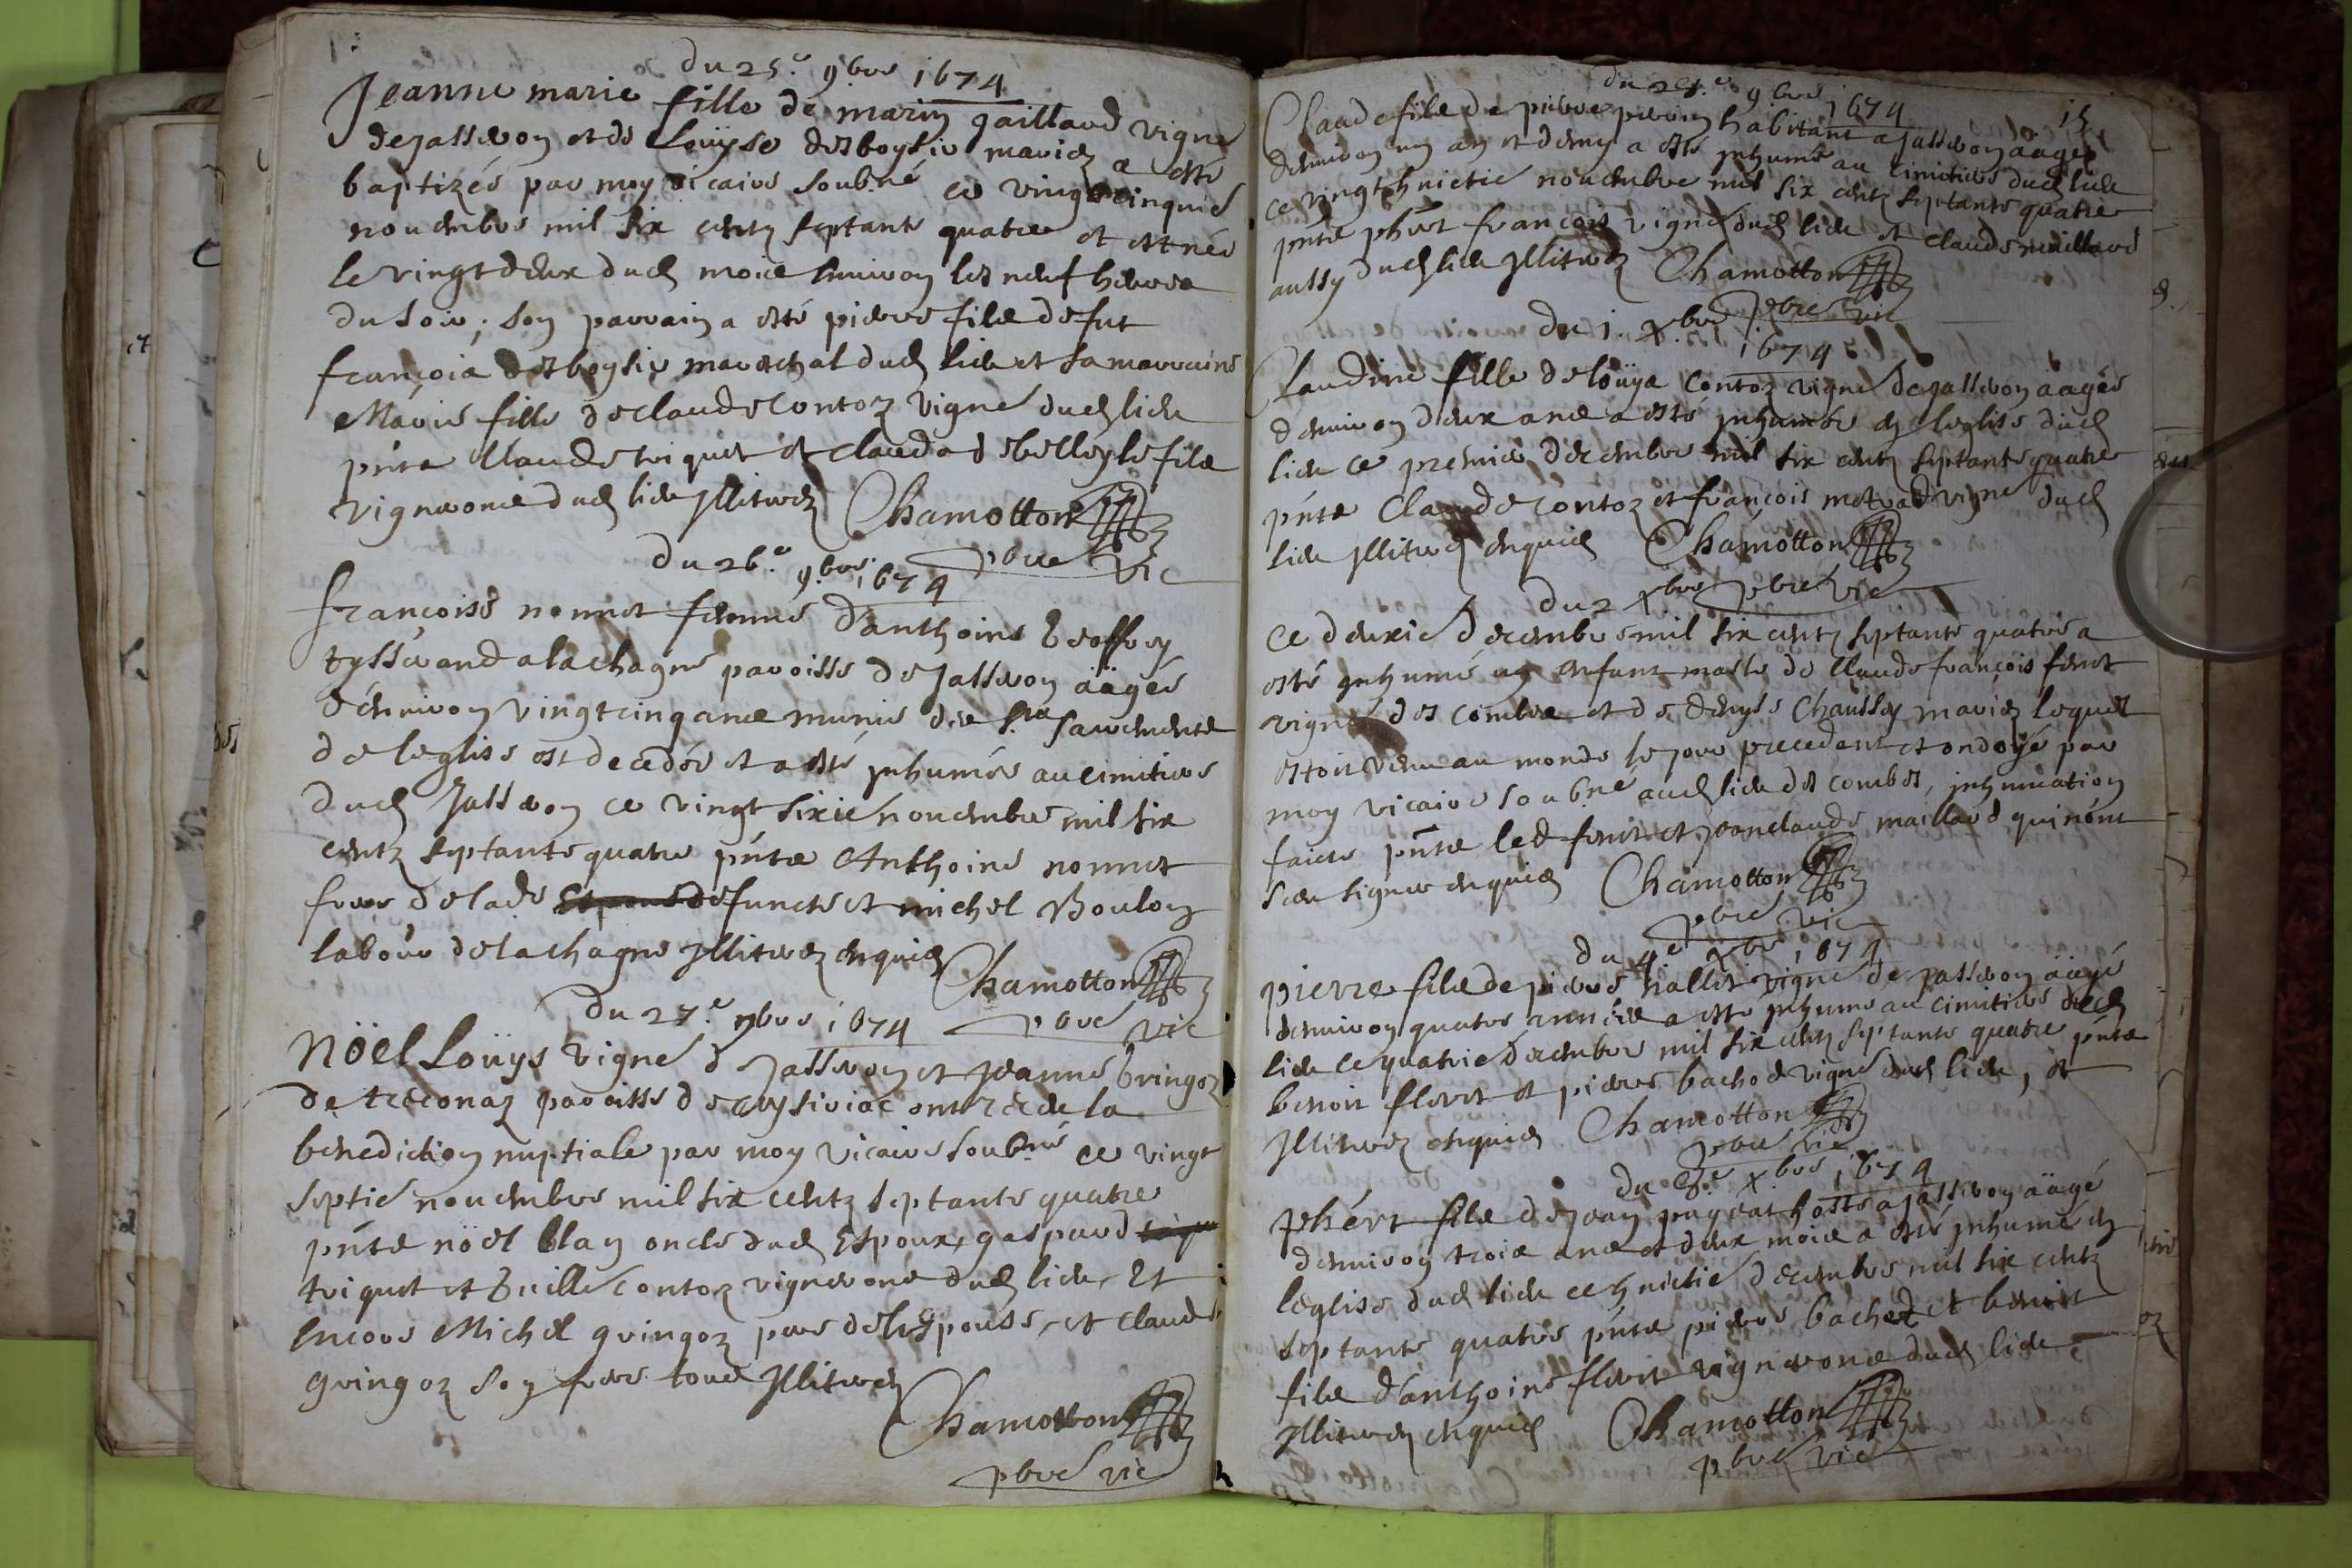 du 25.e 9.bre 1674
Jeanne marie fille de marin gaillard vigne
de jasseron et de Loüyse desboysie mariez a esté
baptizée par moy vicaire soubné ce vingtcinquie
nouembre mil six centz septante quatre et est née
le vingtdeux dud mois enuiron les neuf heures
du soir ; son parrain a esté pierre filz de fut
françois desboysie mareschal dud lieu et sa marraine
Marie fille de claude contoz vigne dud lieu
pnts Claude triquet et claude debelley le filz
vignerons dud lieu Jlliterez Chamotton
pbre vic
du 26.e 9.bre 1674
françoise nonnet femme d'anthoine
tysserand a lachagne paroisse de Jasseron äagée
d'enuiron vingtcinq ans munie des sts sacrements
de leglise est decedée et a esté jnhumée au cimitiere
dud Jasseron ce vingt sixie nouembre mil six
centz septante quatre pnts Anthoine nonnet
frere de lade Espouse defuncte et michel Boulon
labour de lachagne Jlliterez enquis
Chamotton
pbre vic
du 27.e 9bre 1674
Nöel Loüys vigne d Jasseron et Jeanne bringoz
de treconaz paroisse de ceysiriac ont receu la
benediction nuptiale par moy vicaire soubné ce vingt
septie nouembre mil six centz septante quatre
pnts nöel blan oncle dud Espoux, gaspard
triquet et Guille contoz vignerons dud lieu, Et
encore Michel gringoz pere de lespouse, et claude
gringoz son frere tous Jlliterez
Chamotton
pbre vic
15
du 28.e 9bre 1674
Claude filz de pierre perrin habitant a jasseron äagé
denuiron un an et demy a esté jnhumé au cimitiere dud lieu
ce vingt huictie nouembre mil six centz septante quatre
pnts phert françois vigne dud lieu et claude maillard
aussy dud lieu Jlliterez Chamotton
pbre vic
du 1. xbre 1674
Claudine fille de loüys contoz vigne de jasseron äagée
d enuiron deux ans a esté jnhumée en leglise dud
lieu ce premie decembre mil six centz septante quatre
pnts Claude contoz et françois vigne dud
lieu Jlliterez enquis Chamotton
pbre vic
du 2 xbre
Ce deuxie decembre mil six centz septante quatre a
esté jnhumé un enfant masle de Claude françois feret
vigne des combes et de denyse Chaussey mariez lequel
estoit venu au monde le jour precedent et ondoyé par
moy vicaire soubné aud lieu des combes, jnhumation
faicte pnts led feret et jeanclaude maillard qui n'ont
sceu signer enquis Chamotton
pbre vic
du 4e xbre 1674
pierre filz de pierre vigne de jasseron äagé
denuiron quatre années a esté jnhumé au cimitiere dud
lieu ce quatrie decembre mil six centz septante quatre pnts
benoit floret et pierre bachod vigne dud lieu, et
Jlliterez enquis Chamotton
pbre vic
du 8.e xbre 1674
phért filz de jean hoste a jasseron äagé
denuiron trois ans et deux mois a esté jnhumé en
leglise dud lieu ce huictie decembre mil six centz
septante quatre pnts pierre bachod et benoit
filz d'anthoine floret vignerons dud lieu
Jlliterez enquis Chamotton
pbre vic